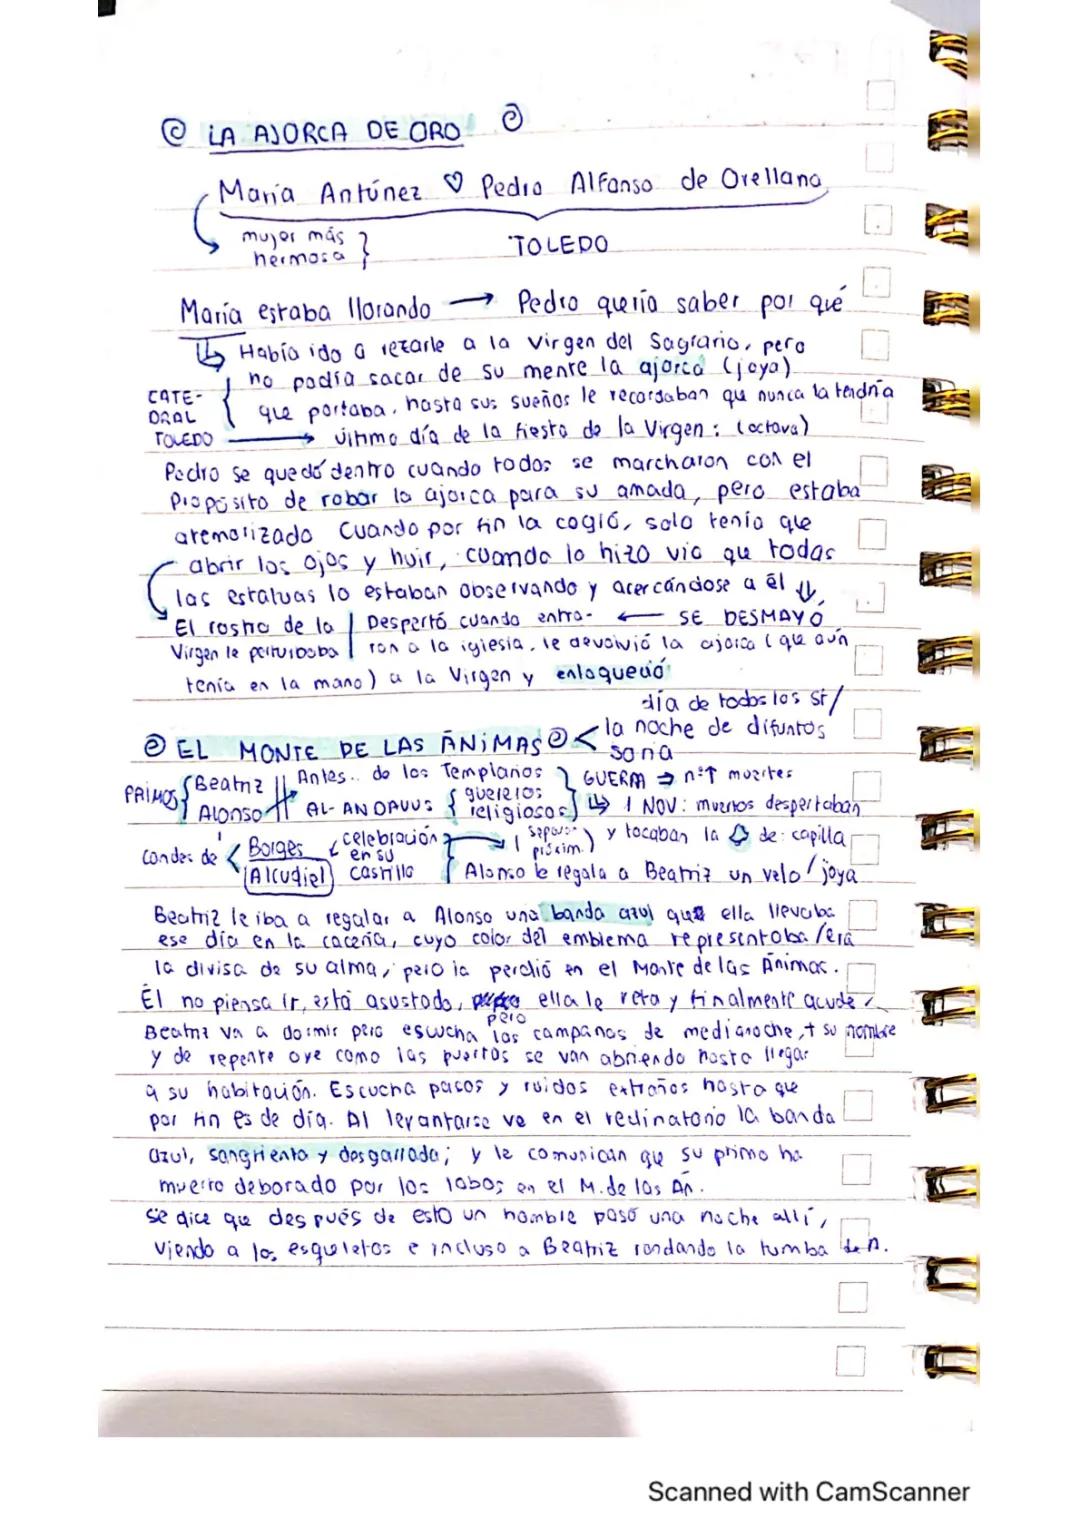 LA AJORCA DE ORO
María Antúnez ♡ Pedro Alfonso de Orellana
mujer más hermosa }
TOLEDO
María estaba llorando → Pedro quería saber por qué
Había ido a rezarle a la Virgen del Sagrario, pero
no podía sacar de su mente la ajorca (joya)
CATEDRAL TOLEDO { que portaba, hasta sus sueños le recordaban que nunca la tendría
→ último día de la fiesta de la Virgen: (octava)
Pedro se quedó dentro cuando todos se marcharon con el
propósito de robar la ajorca para su amada, pero estaba
atemorizado Cuando por fin la cogió, solo tenía que
abrir los ojos y huir, cuando lo hizo vio que todas
las estatuas lo estaban observando y acercándose a él ↓
El rostro de la | Despertó cuando entra- ← SE DESMAYÓ
Virgen le perturbaba | ron a la iglesia, le devolvió la ajorca (que aún
tenía en la mano) a la Virgen y enloqueció
día de todos los st/
EL MONTE DE LAS ÁNIMAS < la noche de difuntos
soria
PRIMOS { Beatriz || Antes.. de los Templarios } GUERRA → nº↑ muertes
Alonso AL-ANDALUS { guerreros religiosos } ↳ 1 NOV: muertos despertaban
y tocaban la de capilla
Condes de < Borges celebración en su castillo
Alcudiel
Alonso le regala a Beatriz un velo/joya
Beatriz le iba a regalar a Alonso una banda azul que ella llevaba
ese día en la cacería, cuyo color del emblema representaba/era
la divisa de su alma, pero la perdió en el Monte de las Ánimas.
Él no piensa ir, está asustado, pero ella le reta y finalmente acude.
Beatriz va a dormir pero escucha las campanas de medianoche, + su nombre
y de repente oye como las puertas se van abriendo hasta llegar
a su habitación. Escucha pasos y ruidos extraños hasta que
por fin es de día. Al levantarse ve en el reclinatorio la banda
azul, sangrienta y desgarrada; y le comunican que su primo ha
muerto deborado por los lobos en el M. de las Án.
Se dice que después de esto un hombre pasó una noche allí,
viendo a los esqueletos e incluso a Beatriz rondando la tumba de A.
Scanned with CamScanner